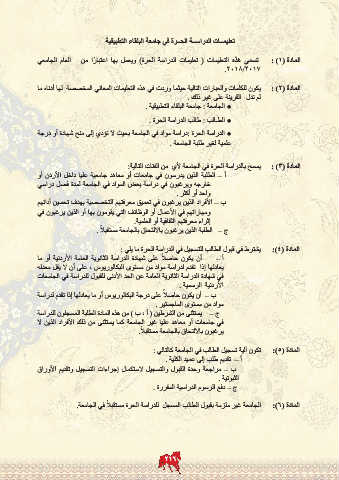 تعليمات الدراسة الحرة في جامعة البلقاء التطبيقية
المادة (١) : تسمى هذه التعليمات ( تعليمات الدراسة الحرة) ويعمل بها اعتبارًا من العام الجامعي
٢٠١٨/٢٠١٧.
المادة (٢) : يكون للكلمات والعبارات التالية حيثما وردت في هذه التعليمات المعاني المخصصة لها أدناه ما
لم تدل القرينة على غير ذلك :
● الجامعة : جامعة البلقاء التطبيقية .
● الطالب : طالب الدراسة الحرة .
● الدراسة الحرة :دراسة مواد في الجامعة بحيث لا تؤدي إلى منح شهادة أو درجة
علمية لغير طلبة الجامعة .
المادة (٣) : يسمح بالدراسة الحرة في الجامعة لأي من الفئات التالية:
أ – الطلبة الذين يدرسون في جامعات أو معاهد جامعية عليا داخل الأردن أو
خارجه ويرغبون في دراسة بعض المواد في الجامعة لمدة فصل دراسي
واحد أو أكثر.
ب – الأفراد الذين يرغبون في تعميق معرفتهم التخصصية بهدف تحسين أدائهم
ومهاراتهم في الأعمال أو الوظائف التي يقومون بها أو الذين يرغبون في
إثراء معرفتهم الثقافية أو العلمية.
ج – الطلبة الذين يرغبون بالالتحاق بالجامعة مستقبلاً .
المادة (٤): يشترط في قبول الطالب للتسجيل في الدراسة الحرة ما يلي :
أ – أن يكون حاصلاً على شهادة الدراسة الثانوية العامة الأردنية أو ما
يعادلها إذا تقدم لدراسة مواد من مستوى البكالوريوس ، على أن لا يقل معدله
في شهادة الدراسة الثانوية العامة عن الحد الأدنى للقبول للدراسة في الجامعات
الأردنية الرسمية .
ب – أن يكون حاصلاً على درجة البكالوريوس أو ما يعادلها إذا تقدم لدراسة
مواد من مستوى الماجستير .
ج – يستثنى من الشرطين ( أ ، ب ) من هذه المادة الطلبة المسجلون للدراسة
في جامعات أو معاهد عليا غير الجامعة كما يستثنى من ذلك الأفراد الذين لا
يرغبون بالالتحاق بالجامعة مستقبلاً.
المادة (٥): تكون آلية تسجيل الطالب في الجامعة كالتالي :
أ – تقديم طلب إلى عميد الكلية .
ب – مراجعة وحدة القبول والتسجيل لاستكمال إجراءات التسجيل وتقديم الأوراق
الثبوتية .
ج – دفع الرسوم الدراسية المقررة .
المادة (٦): الجامعة غير ملزمة بقبول الطالب المسجل للدراسة الحرة مستقبلاً في الجامعة.